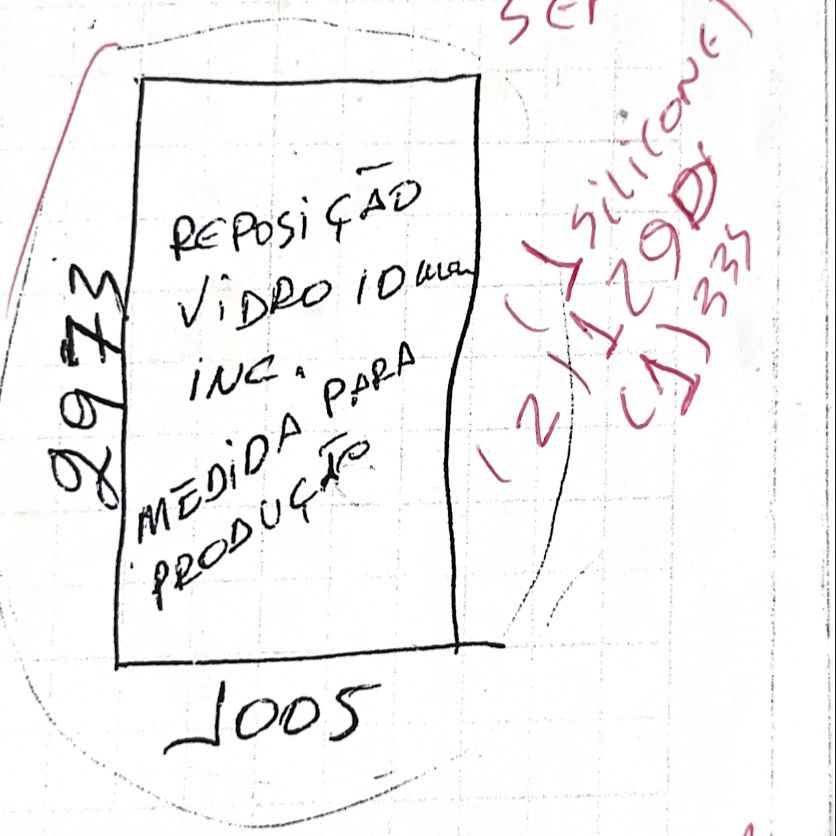 REPOSIÇÃO
VIDRO 10mm
INC.
MEDIDA PARA
PRODUÇÃO
2973
1005
(1) SILICONE
(2) 129D
(1) 335